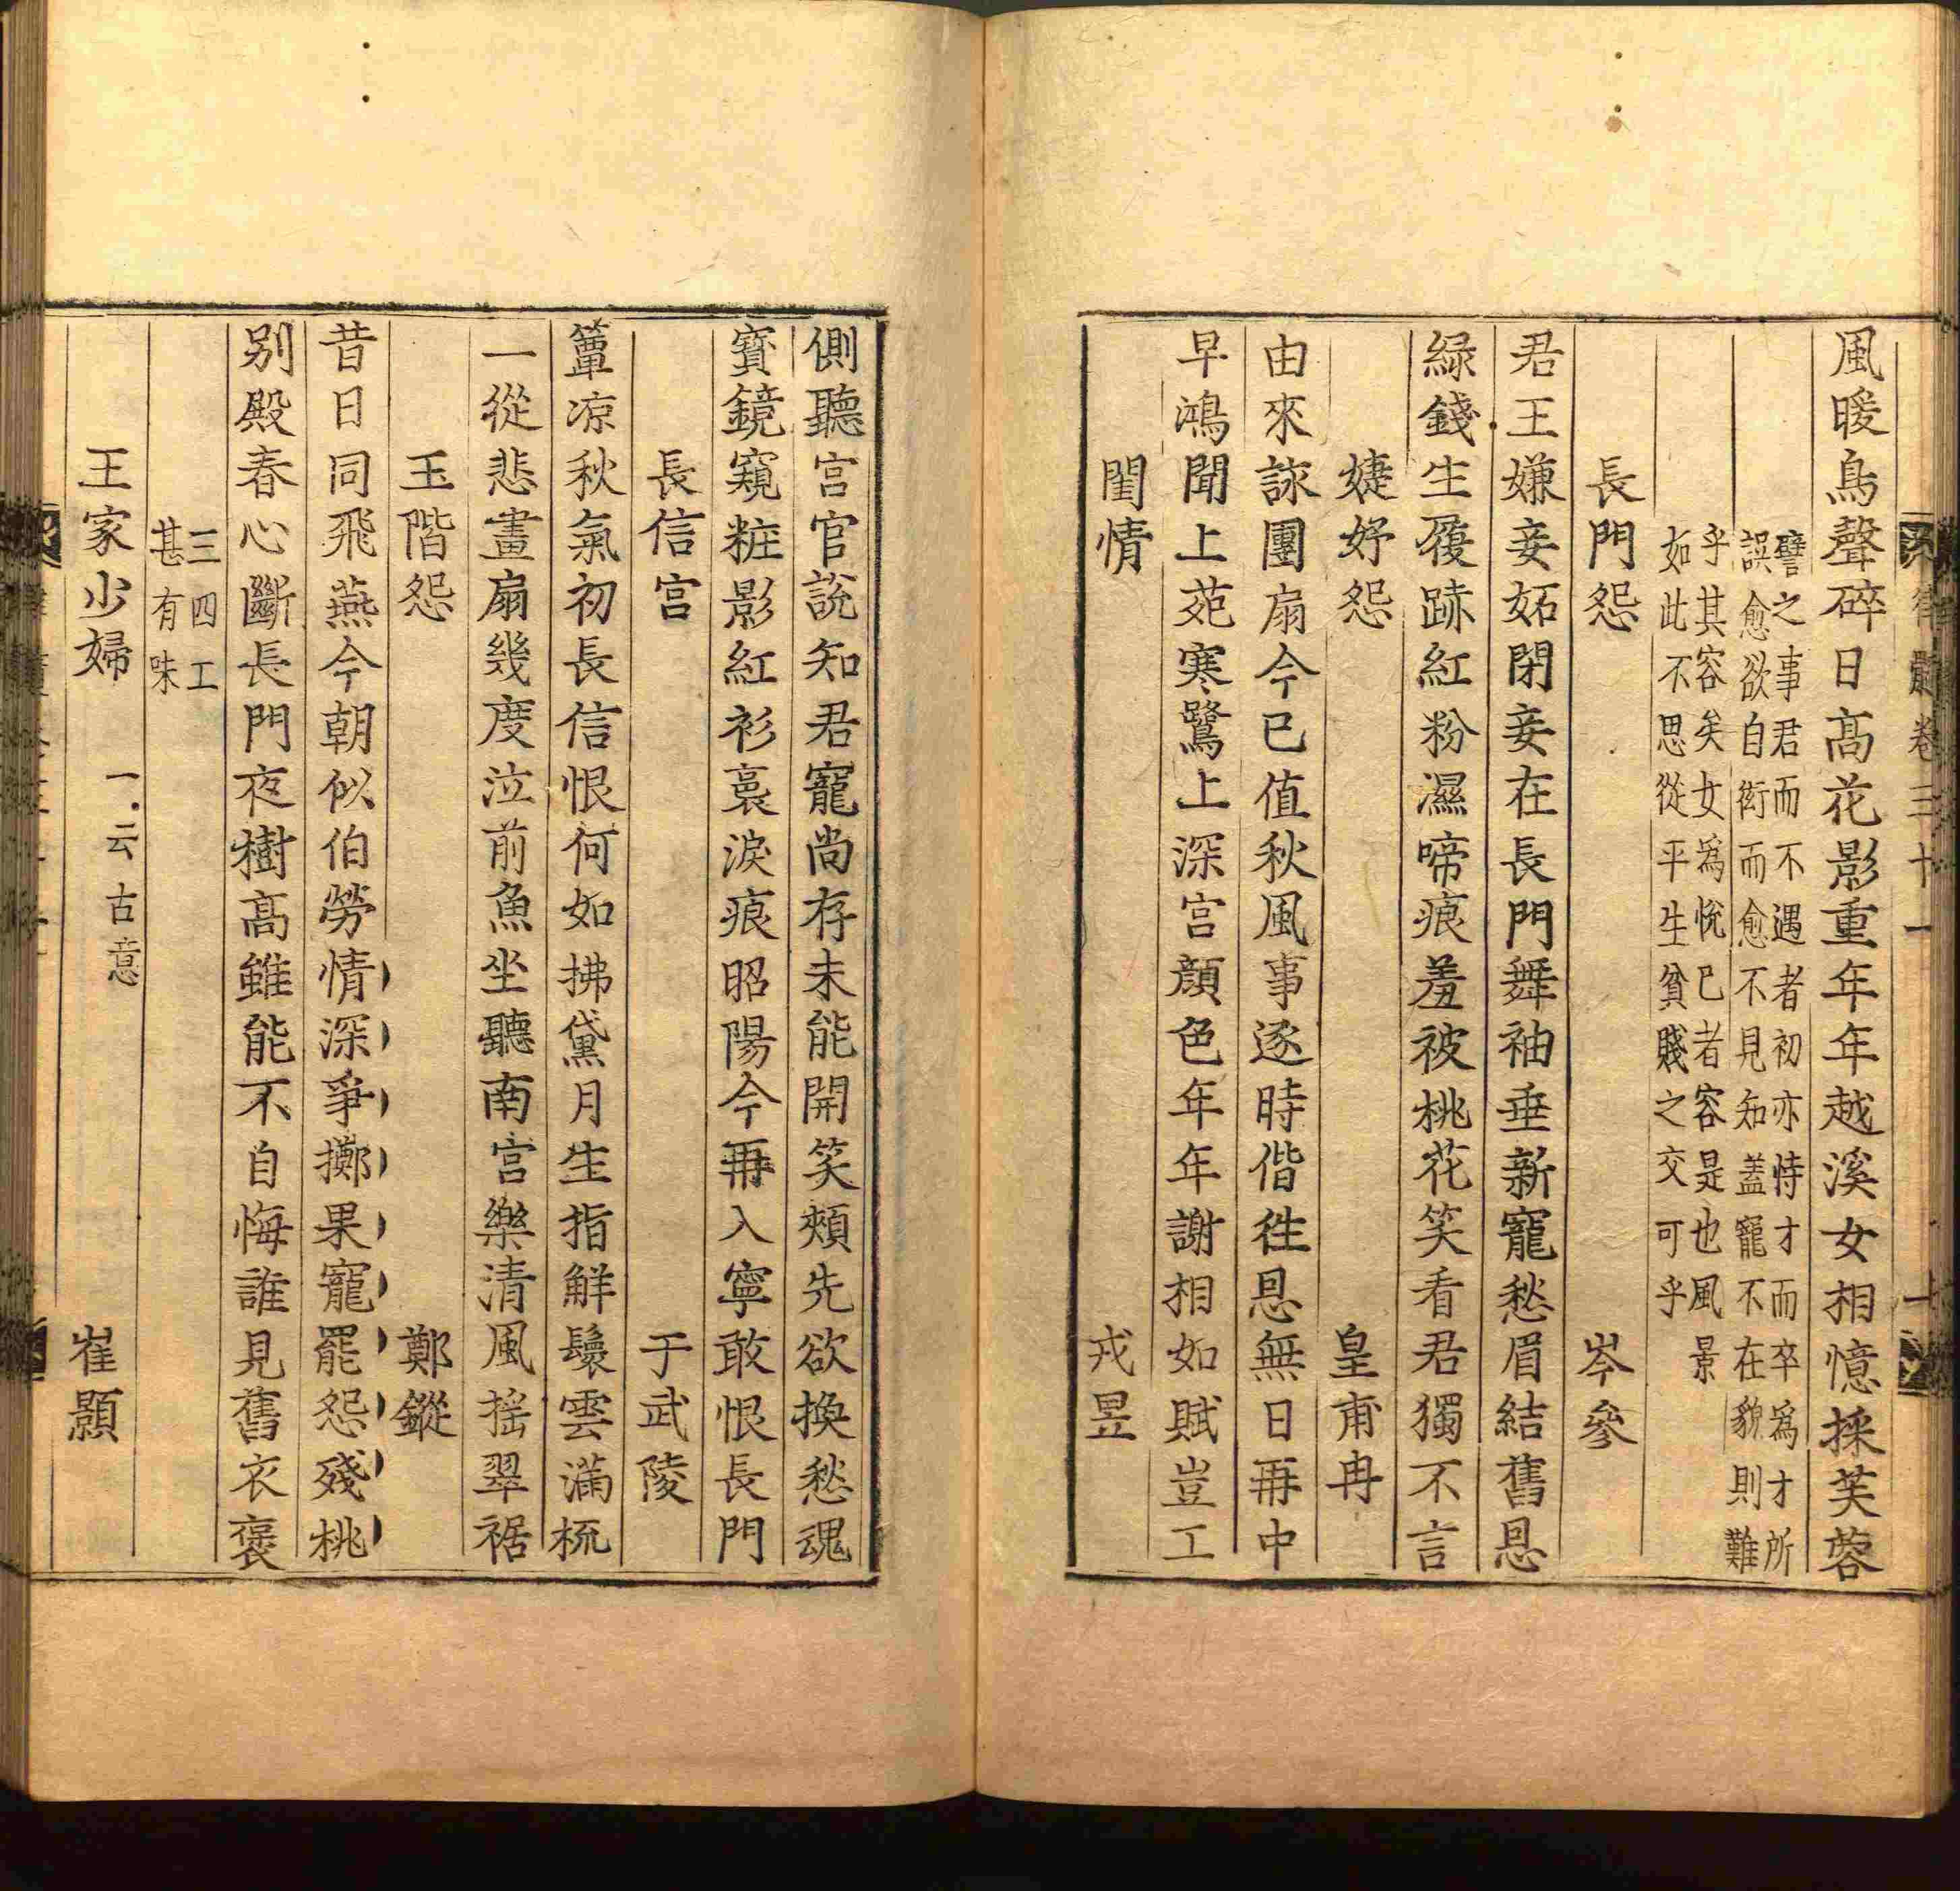 律髓卷三十一
風暖鳥聲碎日髙花影重年年越溪女相憶採芙蓉
譬之事君而不遇者初亦恃才而卒爲才所
誤愈欲自衒而愈不見知蓋寵不在貌則難
乎其容矣女爲悅已者容是也風景
如此不思從平生貧賤之交可乎
長門怨 岑參
君王嫌妾妬閉妾在長門舞袖垂新寵愁眉結舊恩
緑錢生履跡紅粉濕啼痕羞被桃花笑看君獨不言
婕妤怨 皇甫冉
由來詠團扇今已值秋風事逐時偕徃恩無日再中
早鴻聞上苑寒鷺上深宫顔色年年謝相如賦豈工
閨情 戎昱
側聽宫官說知君寵尚存未能開笑頰先欲換愁魂
寳鏡窺粧影紅衫裛淚痕昭陽今再入寧敢恨長門
長信宫 于武陵
簟凉秋氣初長信恨何如拂黛月生指鮮鬟雲滿梳
一從悲畫扇幾度泣前魚坐聽南宫樂清風搖翠裾
玉階怨 鄭鏦
昔日同飛燕今朝似伯勞情深爭擲果寵罷怨殘桃
别殿春心斷長門夜樹髙雖能不自悔誰見舊衣褒
三四工
甚有味
王家少婦 一云古意 崔顥